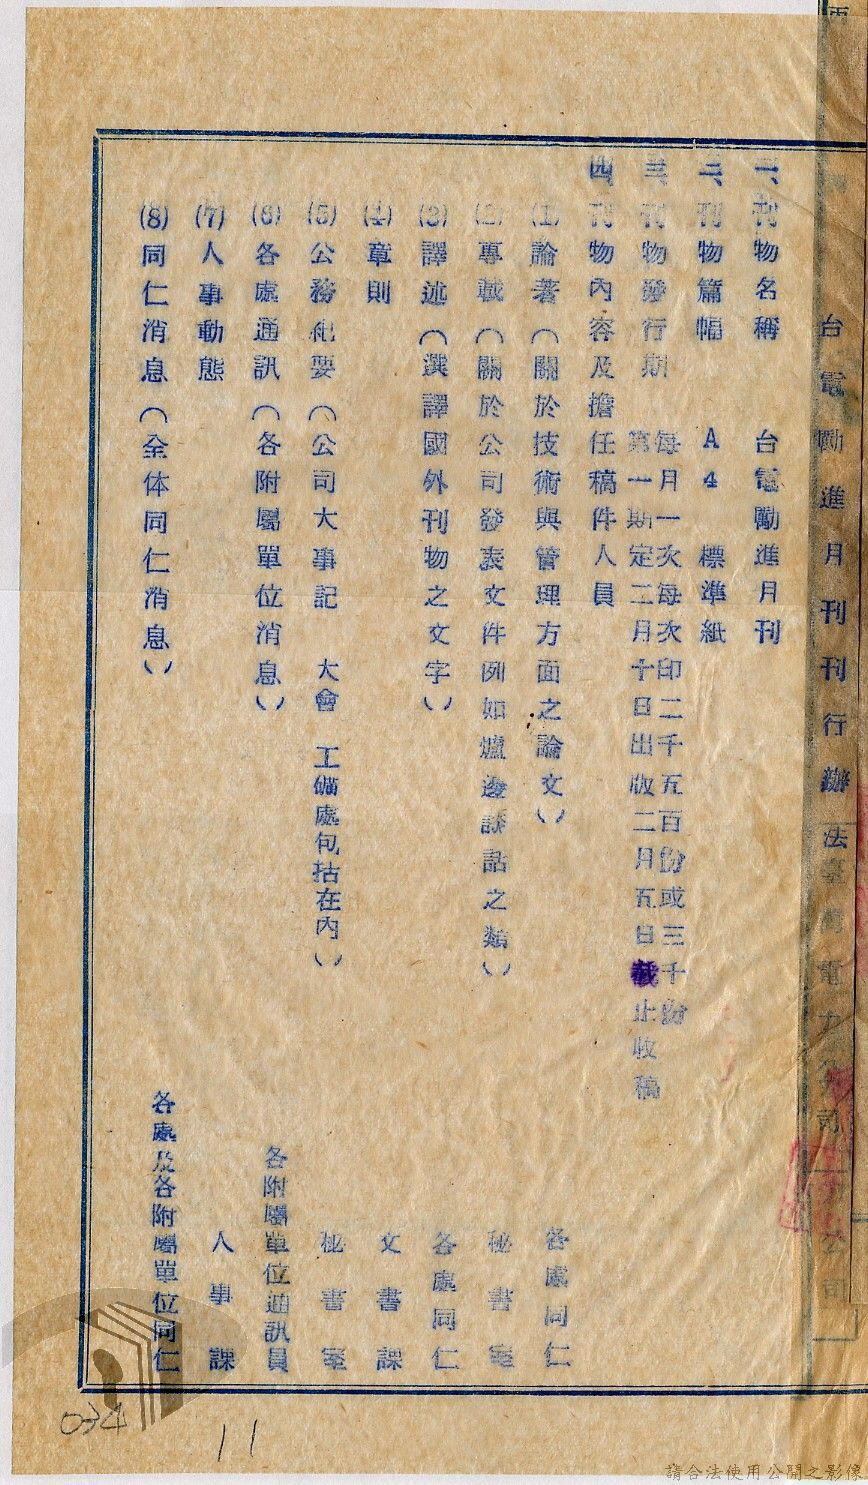 台電勵進月刊刊行辦法
臺灣電力公司
公司
一、刊物名稱 台電勵進月刊
二、刊物篇幅 A4 標準紙
三、刊物發行期 每月一次每次印二千五百份或三千份
第一期定二月十日出版二月五日截止收稿
四、刊物內容及擔任稿件人員
(1)論著(關於技術與管理方面之論文) 各處同仁
(2)專載(關於公司發表文件例如爐邊談話之類) 秘書室
(3)譯述(選譯國外刊物之文字) 各處同仁
(4)章則 文書課
(5)公務紀要(公司大事記 大會 工礦處包括在內) 秘書室
(6)各處通訊(各附屬單位消息) 各附屬單位通訊員
(7)人事動態 人事課
(8)同仁消息(全体同仁消息) 各處及各附屬單位同仁
034
11
請合法使用公開之影像